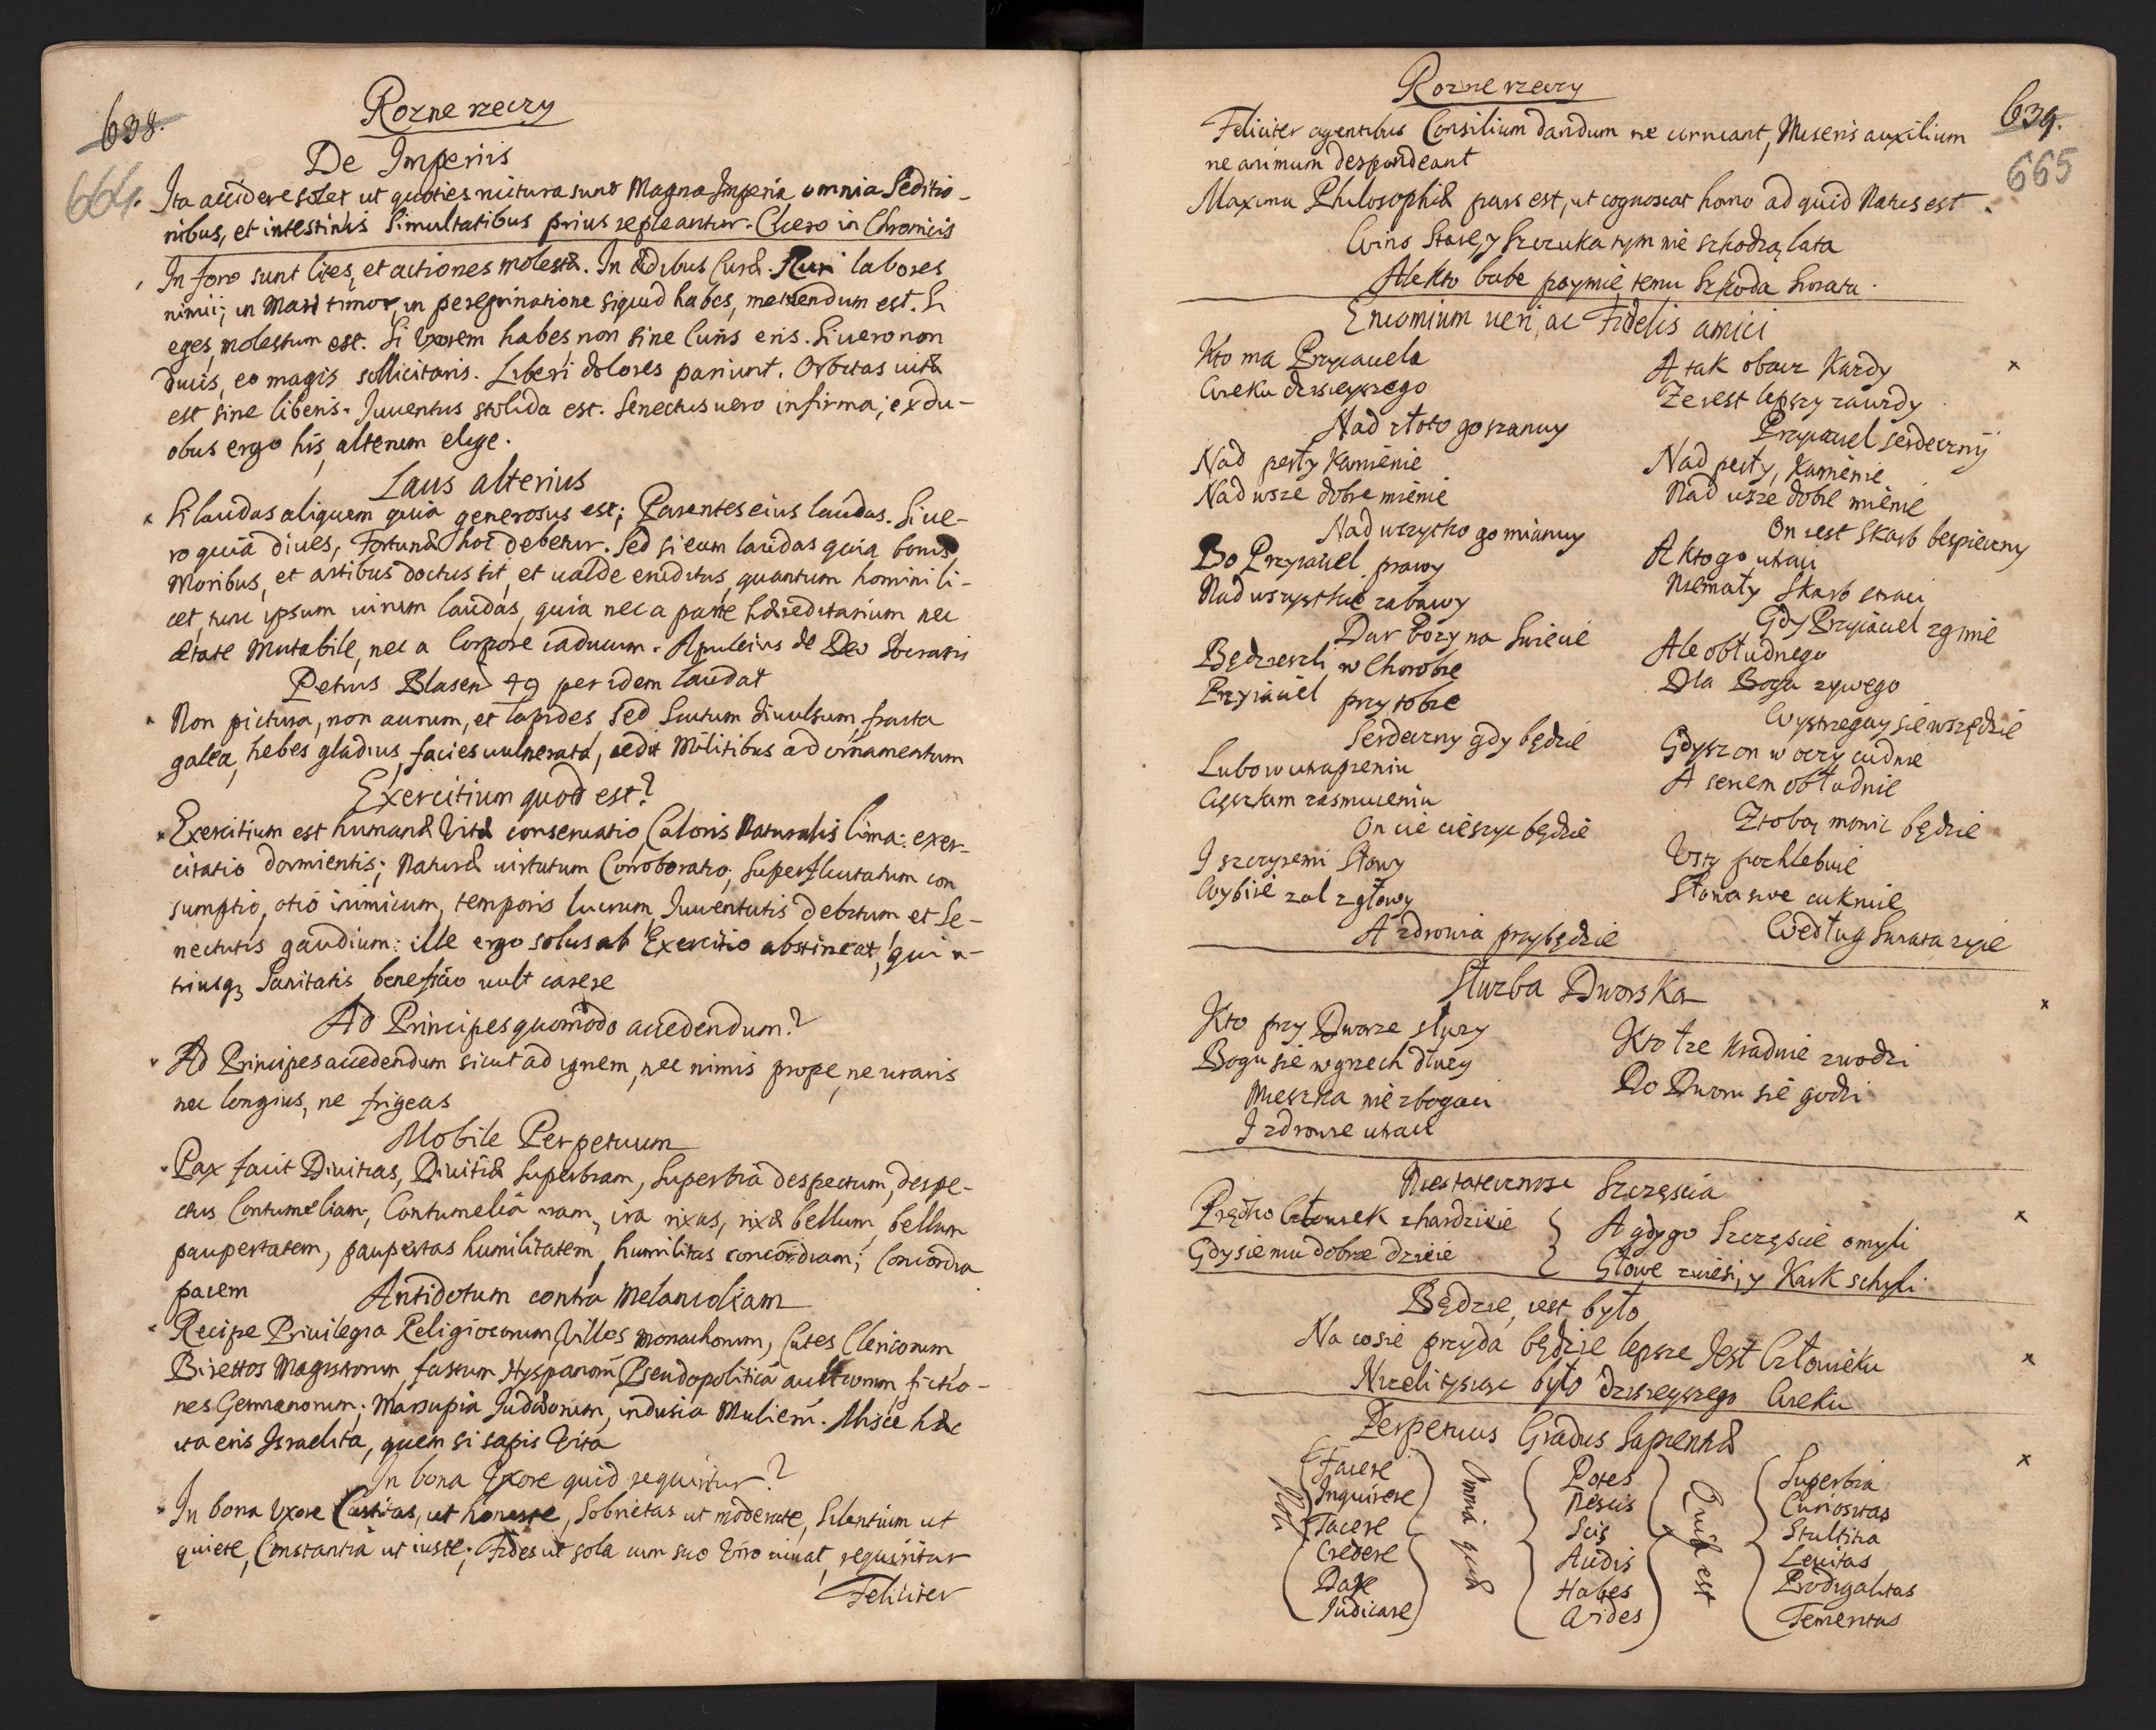 638.
664.
Rozne rzeczy
De Imperiis
Ita accidere solet ut quoties ruitura sunt Magna Imperia omnia Seditio-
nibus, et intestinis Simultatibus prius repleantur. Cicero in Chronicis
In foro sunt lites, et actiones molestæ. In ædibus Curæ. Ruri labores
nimii; in Mari timor, in peregrinatione siquid habes, metuendum est. Si
eges, molestum est. Si Uxorem habes non sine Curis eris. Si uero non
ducis, eo magis sollicitaris. Liberi dolores pariunt. Orbitas uita
est sine liberis. Iuuentus stolida est. Senectus uero infirma; ex du-
obus ergo his, alterum elige.
Laus alterius
Si laudas aliquem quia generosus est; Parentes eius laudas. Si ue-
ro quia diues, Fortunæ hoc debetur. Sed si eum laudas quia bonis
Moribus, et artibus doctus sit, et ualde eruditus, quantum homini li-
cet, tunc ipsum uirum laudas, quia nec a patre hæreditarium nec
ætate Mutabile, nec a Corpore caducum. Apuleius de Deo Socratis
Petrus Blasen 49 per idem laudat
Non pictura, non aurum, et lapides sed Scutum diuulsum, fracta
galea, hebes gladius, facies uulnerata, cedit Militibus ad ornamentum
Exercitium quod est?
Exercitium est humanæ Vitæ conseruatio, Caloris Naturalis lima: exer-
citatio dormientis; Naturæ uirtutum Corroboratio; Superfluitatum con
sumptio, otio inimicum, temporis lucrum, Iuuentutis debitum et Se-
nectutis gaudium: ille ergo solus ab Exercitio abstineat, qui u-
triusq3 Sanitatis beneficio uult carere
Ad Principes quomodo accedendum?
Ad Principes accedendum sicut ad ignem, nec nimis prope, ne uraris
nec longius, ne frigeas
Mobile Perpetuum
Pax facit Diuitias, Diuitiæ Superbiam, Superbia despectum, despe-
ctus Contumeliam, Contumelia iram, ira rixas, rixæ bellum, bellum
paupertatem, paupertas humilitatem, humilitas concordiam; Concordia
pacem
Antidotum contra Melancoliam
Recipe Priuilegia Religiosorum, Villas Monachorum, Cutes Clericorum
Birettos Magistrorum, fastum Hyspanorum, Pseudopolitica aulicorum, fictio-
nes Germanorum; Marsupia Iudæorum, indusia Mulierum. Misce hæc
ita eris Israelita, quem si sapis Vita
In bona Uxore quid requiritur?
In bona Uxore Castitas, ut honeste, Sobrietas ut moderate, Silentium ut
quiete, Constantia ut iuste; Fides ut sola cum suo Viro uiuat, requiritur
Feliciter
Rozne rzeczy
639.
665
Feliciter agentibus Consilium dandum ne corruant, Miseris auxilium
ne animum despondeant
Maxima Philosophiæ pars est, ut cognoscat homo ad quid Natus est
Wino Stare, y Szczuka tym nie szkodzą lata
Ale kto babe poymie, temu Szkoda Swiata.
Encomium ueri, ac Fidelis amici
Kto ma Przyiaciela
Wieku dzisieyszego
Nad złoto go szanuy
Nad perły Kamienie
Nad wsze dobre mienie
Nad wszytko go miłuuy
Bo Przyiaciel prawy
Nad wszystkie zabawy
Dar Bozy na Swiecie
Będzieszli w Chorobie
Przyiaciel przy tobie
Serdeczny gdy będzie
Lubo w utrapieniu
Cięszkim zasmuceniu
On cie cieszyc będzie
I szczyremi Słowy
Wybiie zal z głowy
A zdrowia przybędzie
A tak obacz Kazdy
Ze iest lepszy zawzdy
Przyiaciel serdeczny
Nad perły, Kamienie
Nad wsze dobre mienie
On iest Skarb bespieczny
A kto go utraci
Niemały Skarb straci
Gdy Przyiaciel zginie
Ale obłudnego
Dla Boga zywego
Wystrzegay sie wszędzie
Gdysz on w oczy cudnie
A sercem obłudnie
Z tobą mowic będzie
Usty pochlebuie
Słowa swe cukruie
Według Swiata zyie
Słuzba Dworska
Kto przy Dworze słuzy
Bogu sie w grzech dłuzy
Mieszka nie zbogaci
I zdrowie utraci
Kto łze kradnie zwodzi
Do Dworu sie godzi
Niestatecznosc Szczęscia
Prędko Człowiek zhardzieie
Gdy sie mu dobrze dzieie
A gdy go Szczęscie omyli
Głowe zwiesi, y Kark schyli
Będzie, iest było
Na co sie przyda będzie lepsze Iest Człowieku
Nizeli tysiąc było dzisieyszego Wieku
Perpetuus Gradus Sapientiæ
Noli
Facere
Inquirere
Tacere
Credere
Dare
Iudicare
Omnia quæ
Potes
Nescis
Scis
Audis
Habes
Vides
Quid est
Superbia
Curiositas
Stultitia
Leuitas
Prodigalitas
Temeritas